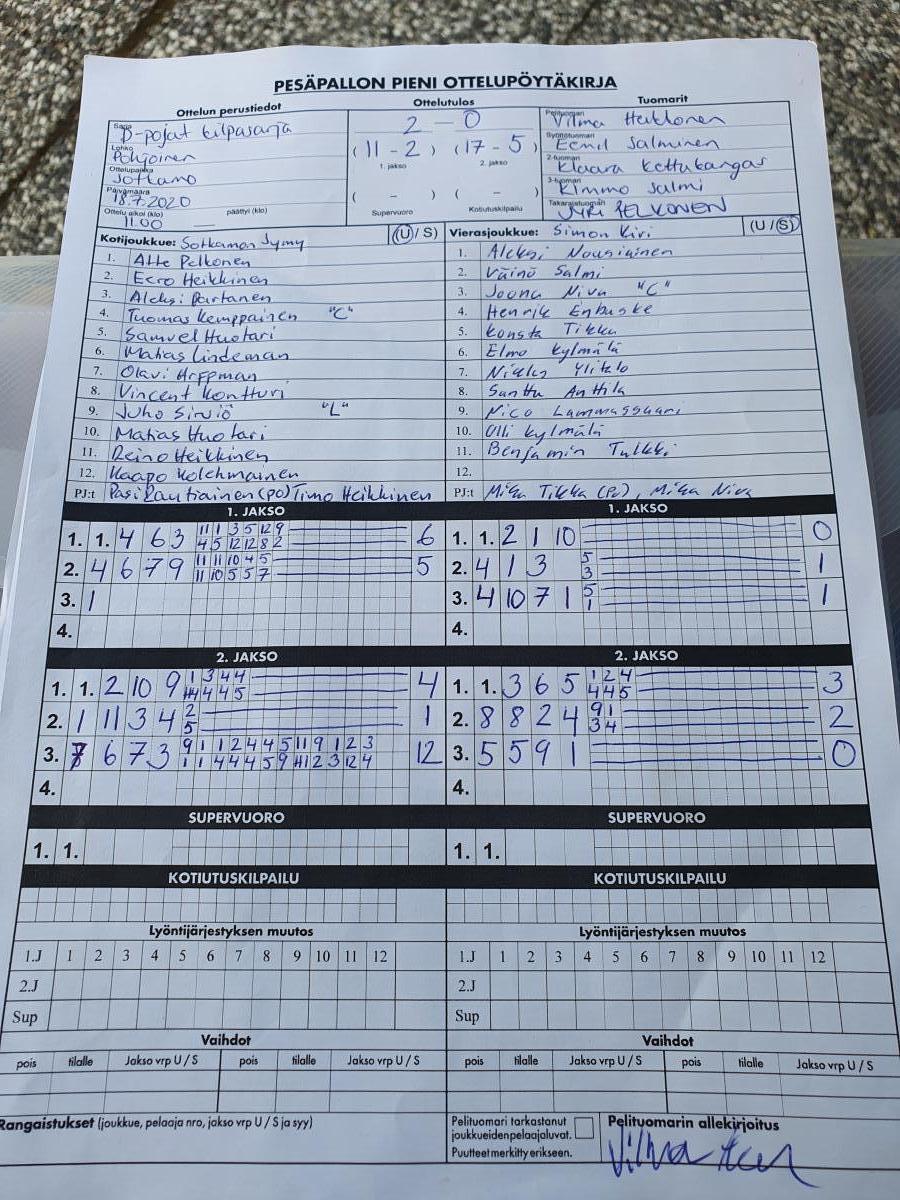 PESÄPALLON PIENI OTTELUPÖYTÄKIRJA
Ottelun perustiedot Ottelutulos Tuomarit
Sarja D-pojat kilpasarja
Lohko Pohjoinen
Ottelupaikka Sotkamo
Päivämäärä 18.7.2020
Ottelu alkoi (klo) 11.00 päättyi (klo) —
2 — 0
(11 - 2) (17 - 5)
1. jakso 2. jakso
( - ) ( - )
Supervuoro Kotiutuskilpailu
Pelituomari Vilma Heikkonen
Syöttötuomari Eemil Salminen
2-tuomari Klaara Kettukangas
3-tuomari Kimmo Salmi
Takarajatuomari JYRI PELKONEN
Kotijoukkue: Sotkamon Jymy (U / S)
1. Atte Pelkonen
2. Eero Heikkinen
3. Aleksi Partanen
4. Tuomas Kemppainen "C"
5. Samuel Huotari
6. Matias Lindeman
7. Olavi Arffman
8. Vincent Kontturi
9. Juho Sirviö "L"
10. Matias Huotari
11. Reino Heikkinen
12. Kaapo Kolehmainen
PJ:t Pasi Rautiainen (PO) Timo Heikkinen
Vierasjoukkue: Simon Kiri (U / S)
1. Aleksi Nousiainen
2. Väinö Salmi
3. Joona Niva "C"
4. Henrik Enbuske
5. Konsta Tikka
6. Elmo Kylmälä
7. Niklas Ylitalo
8. Santtu Anttila
9. Nico Lammassaari
10. Olli Kylmälä
11. Benjamin Tulkki
12.
PJ:t Mika Tikka (PO), Mika Niva
1. JAKSO 1. JAKSO
1. 1. 4 6 3 11 1 3 5 12 9 6
4 5 12 12 8 2
2. 4 6 7 9 11 11 10 4 5 5
11 10 5 5 7
3. 1
4.
1. 1. 2 1 10 0
2. 4 1 3 5 1
3
3. 4 10 7 1 5 1
1
4.
2. JAKSO 2. JAKSO
1. 1. 2 10 9 1 3 4 4 4
4 4 4 5
2. 1 11 3 4 2 1
5
3. 6 7 3 9 1 1 2 4 4 5 11 9 1 2 3 12
1 1 4 4 4 5 9 11 12 3 12 4
4.
1. 1. 3 6 5 1 2 4 3
4 4 5
2. 8 8 2 4 9 1 2
3 4
3. 5 5 9 1 0
4.
SUPERVUORO SUPERVUORO
1. 1. 1. 1.
KOTIUTUSKILPAILU KOTIUTUSKILPAILU
Lyöntijärjestyksen muutos Lyöntijärjestyksen muutos
1.J 1 2 3 4 5 6 7 8 9 10 11 12 1.J 1 2 3 4 5 6 7 8 9 10 11 12
2.J 2.J
Sup Sup
Vaihdot Vaihdot
pois tilalle Jakso vrp U / S pois tilalle Jakso vrp U / S pois tilalle Jakso vrp U / S pois tilalle Jakso vrp U / S
Rangaistukset (joukkue, pelaaja nro, jakso vrp U / S ja syy)
Pelituomari tarkastanut
joukkueiden pelaajaluvat.
Puutteet merkitty erikseen.
Pelituomarin allekirjoitus